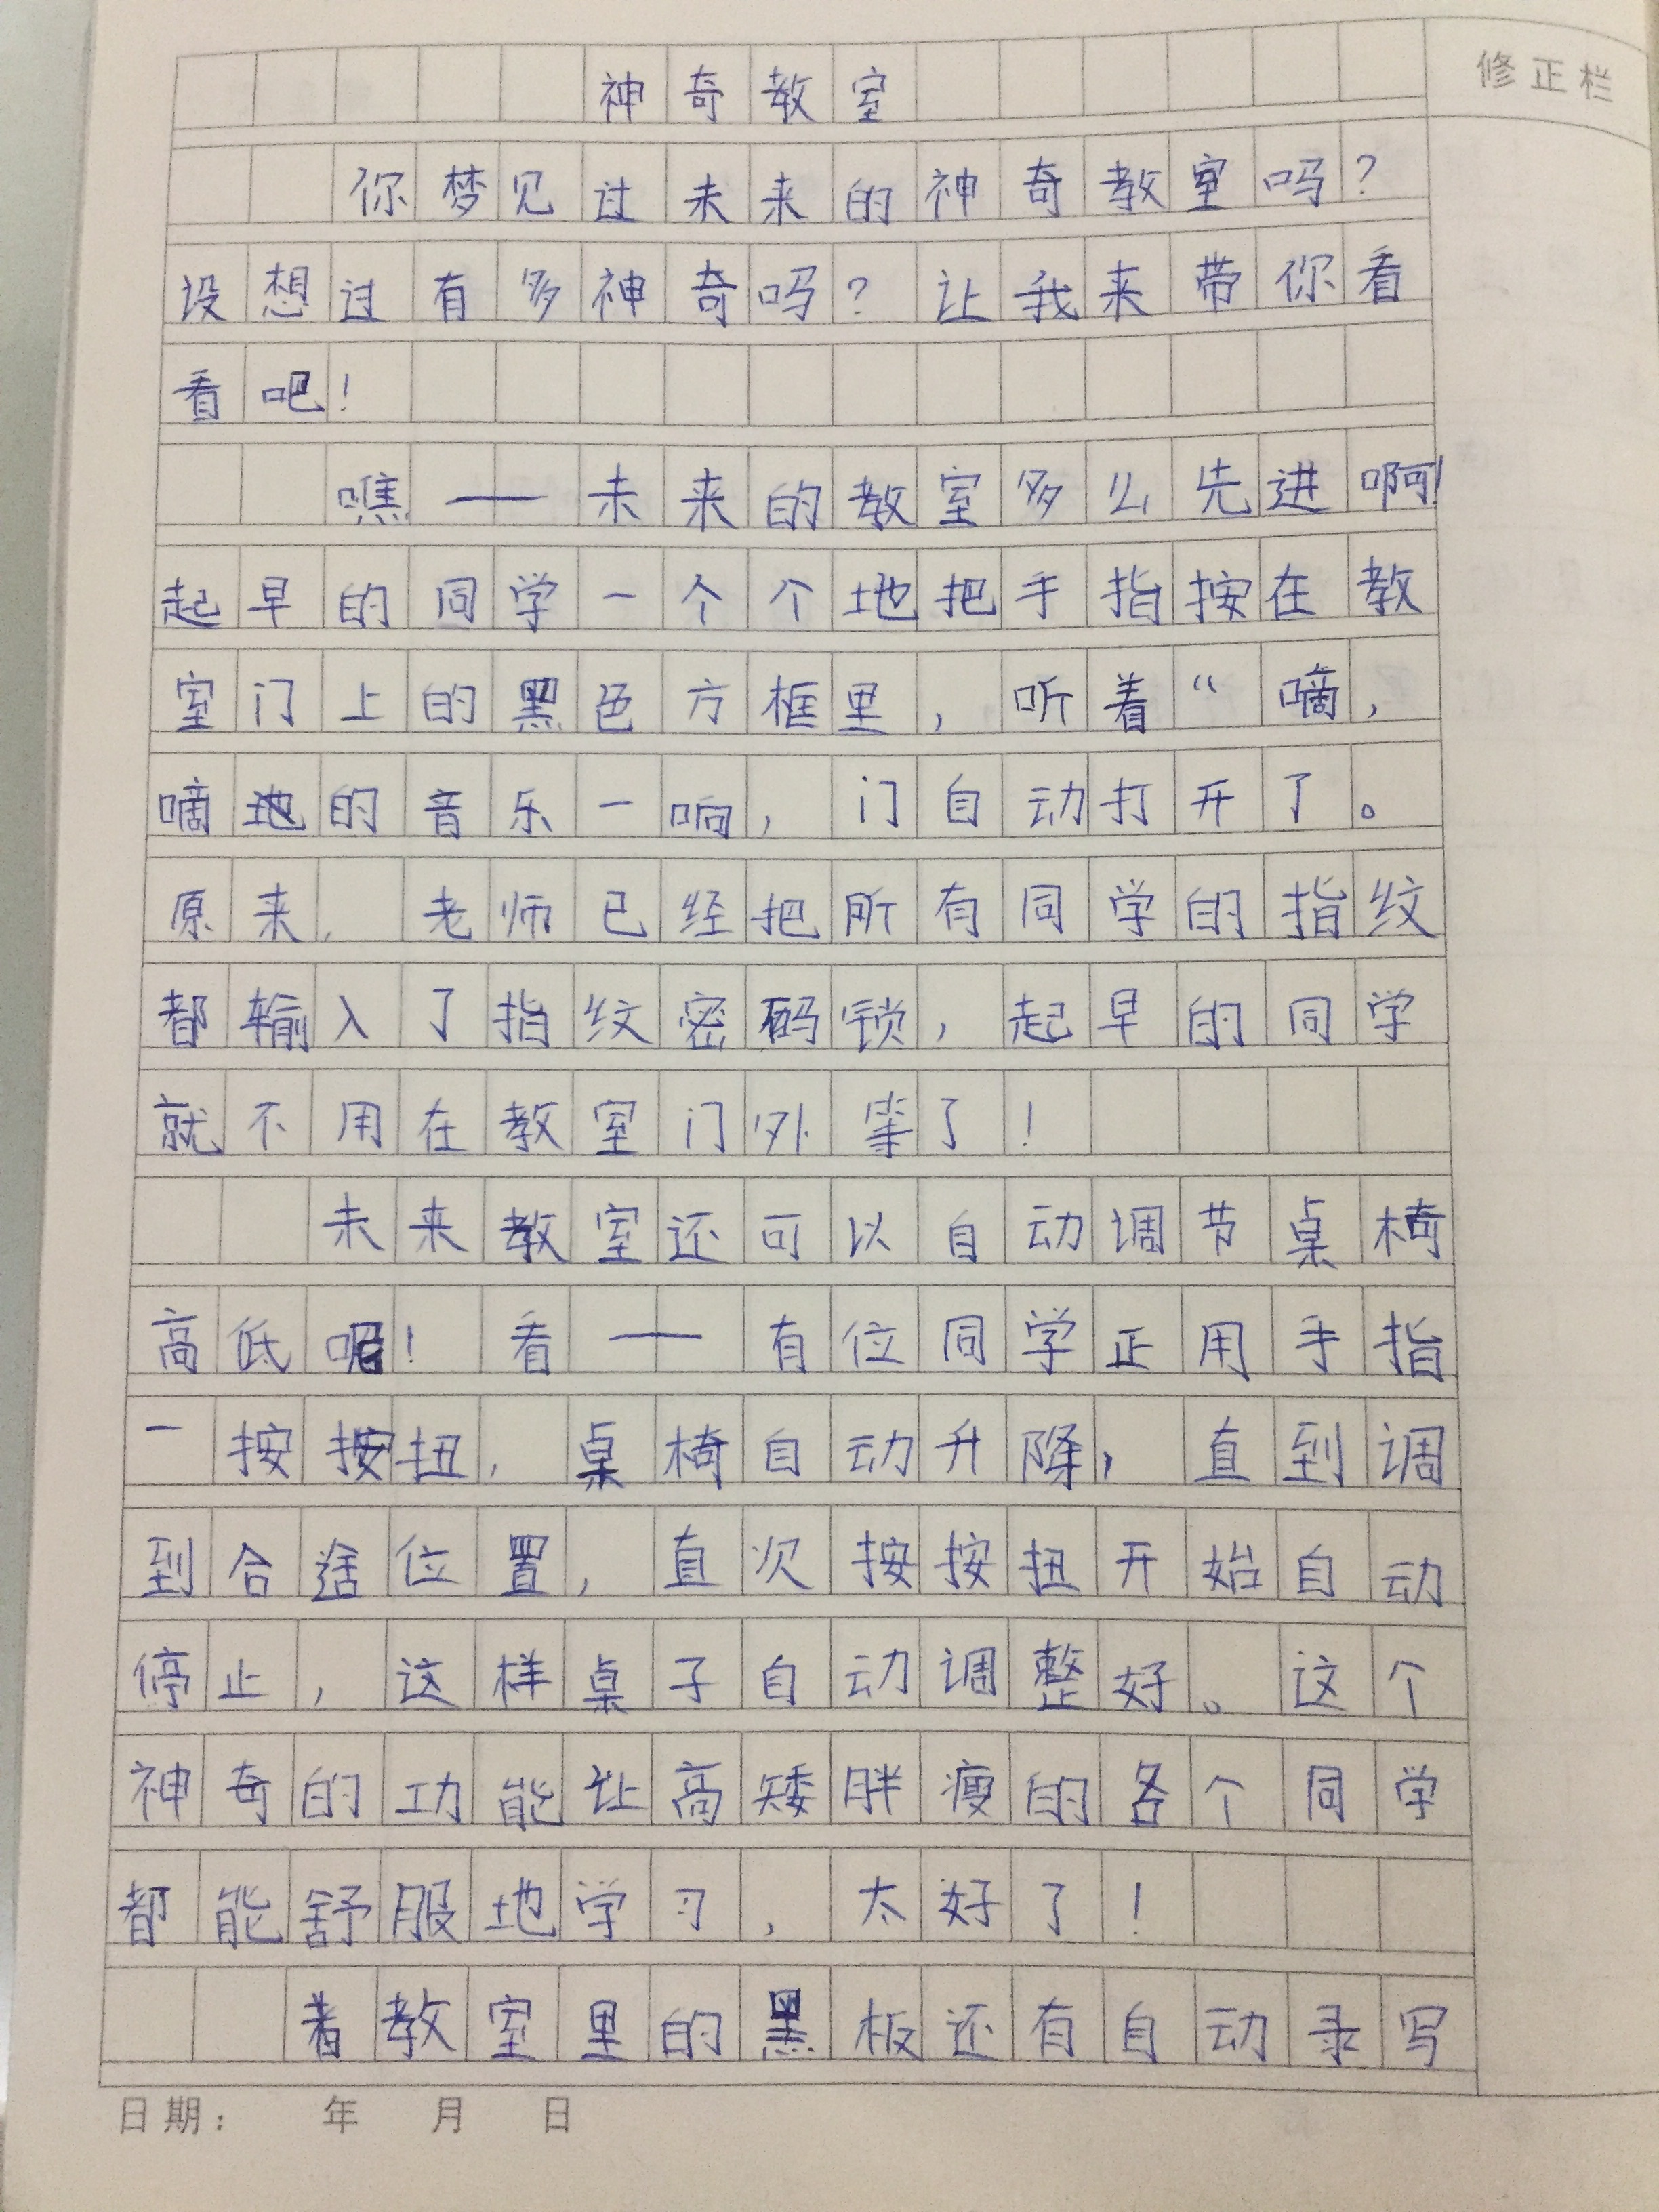 修正栏
神奇教室
你梦见过未来的神奇教室吗？
设想过有多神奇吗？让我来带你看
看吧！
瞧——未来的教室多么先进啊！
起早的同学一个个地把手指按在教
室门上的黑色方框里，听着“嘀，
嘀地的音乐一响，门自动打开了。
原来，老师已经把所有同学的指纹
都输入了指纹密码锁，起早的同学
就不用在教室门外等了！
未来教室还可以自动调节桌椅
高低呢！看——有位同学正用手指
一按按扭，桌椅自动升降，直到调
到合适位置，直次按按扭开始自动
停止，这样桌子自动调整好。这个
神奇的功能让高矮胖瘦的各个同学
都能舒服地学习，太好了！
着教室里的黑板还有自动录写
日期：　年　月　日